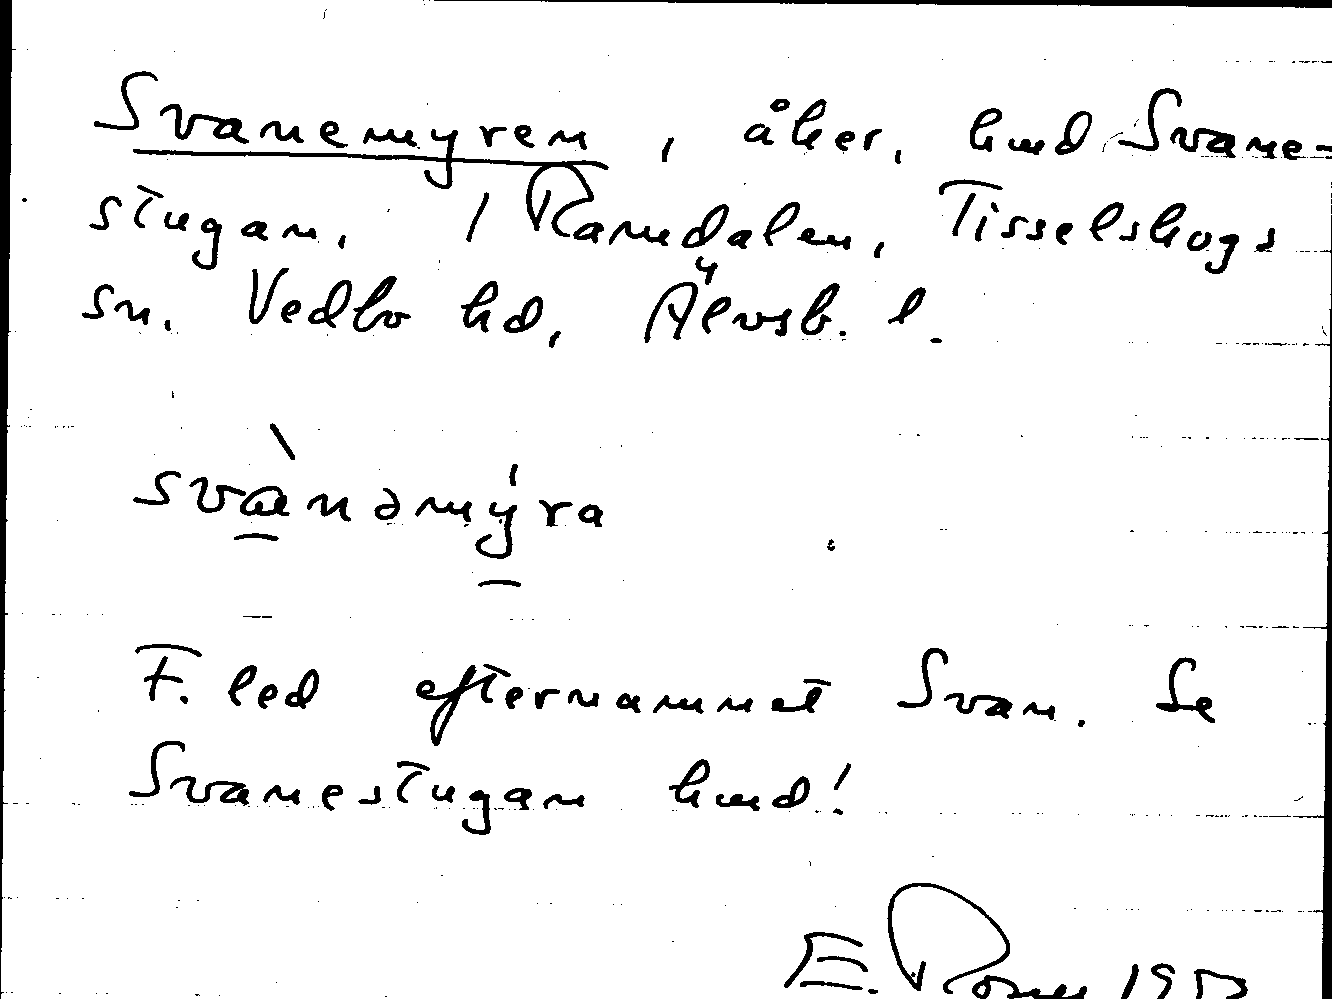 Svanemyren, åker, hmd Svane-
stugan, 1 Ramdalen, Tisselskogs
sn. Vedbo hd, Älvsb. l.
svànəmýra
F. led efternamnet Svan. Se
Svanestugan hmd!
E.